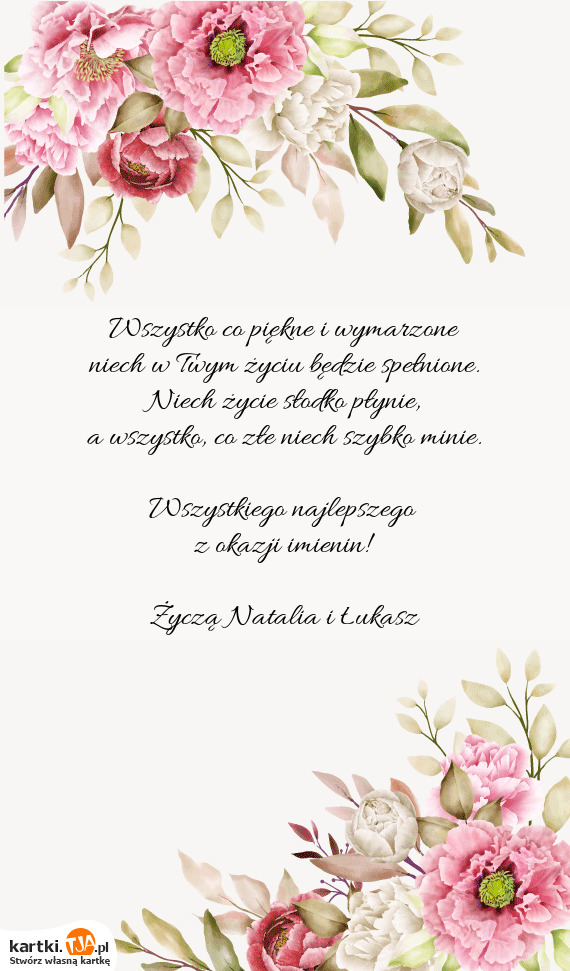 Wszystko co piękne i wymarzone
niech w Twym życiu będzie spełnione.
Niech życie słodko płynie,
a wszystko, co złe niech szybko minie.
Wszystkiego najlepszego
z okazji imienin!
Życzą Natalia i Łukasz
kartki.TJA.pl
Stwórz własną kartkę